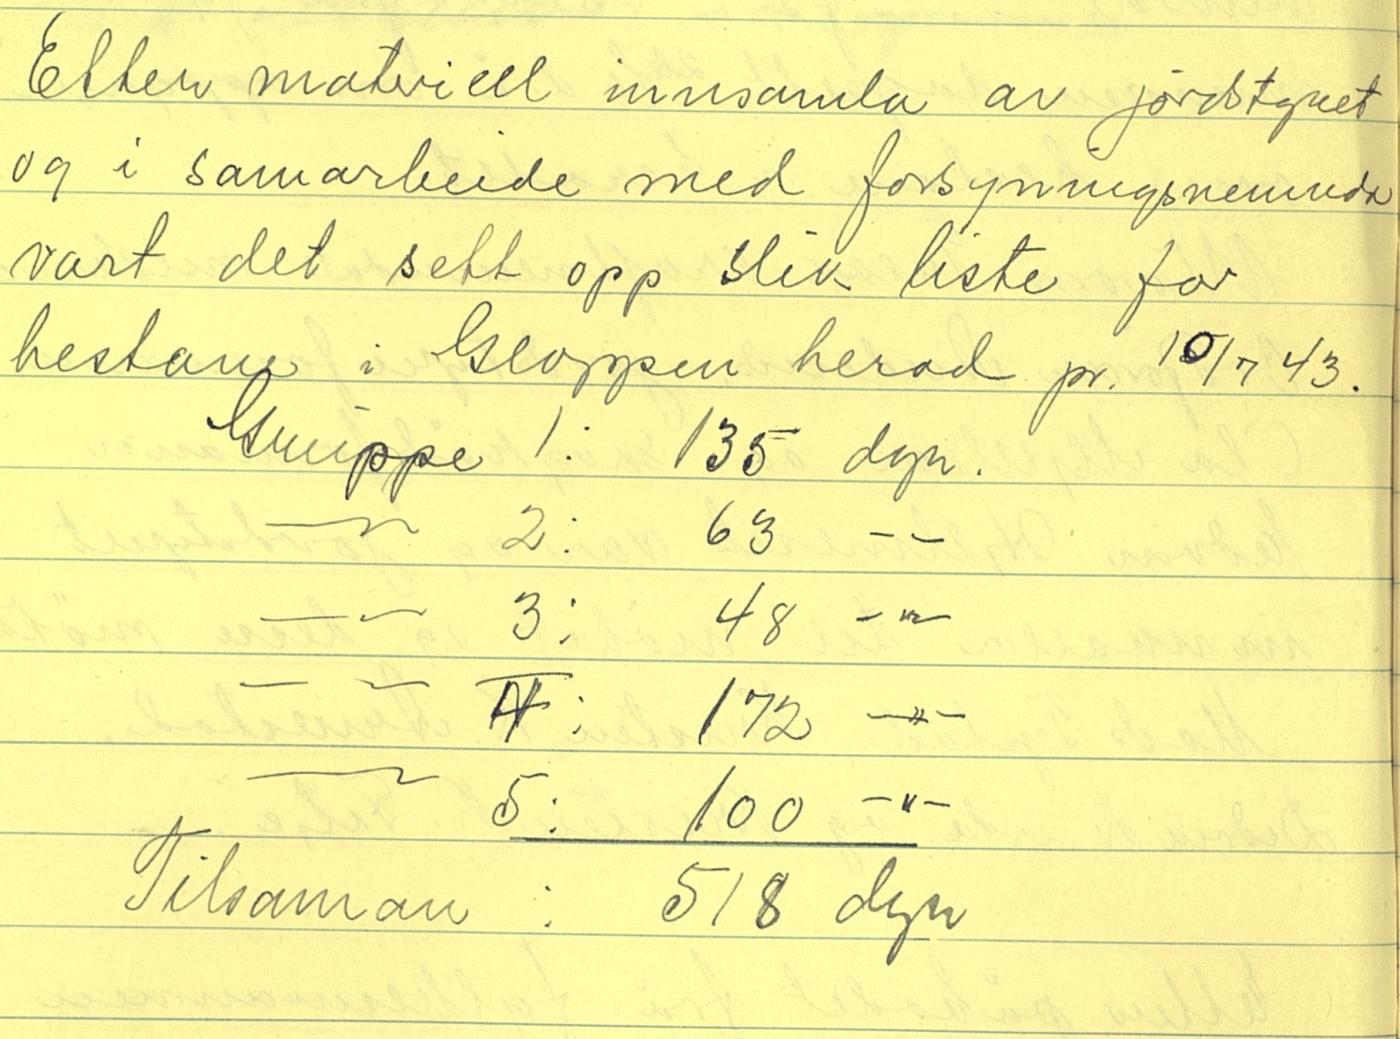 Etter materiell innsamla av jordstyret
og i samarbeide med forsyningsnemnda
vart det sett opp slik liste for
hestane i Gloppen herad pr. 10/7 43.
Gruippe 1: 135 dyr.
—〃— 2: 63 —〃—
—〃— 3: 48 —〃—
—〃— 4: 172 —〃—
—〃— 5: 100 —〃—
Tilsaman : 518 dyr